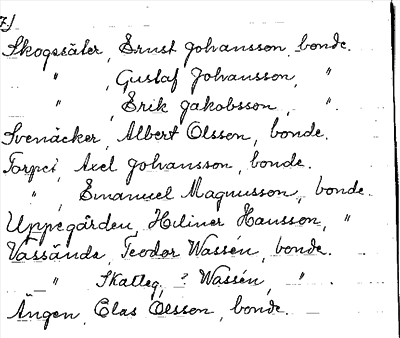 7.)
Skogssäter, Ernst Johansson, bonde.
" , Gustaf Johansson, "
" , Erik Jakobsson, ".
Svenäcker, Albert Olsson, bonde.
Torpet, Axel Johansson, bonde.
" , Emanuel Magnusson, bonde.
Uppegården, Hilmer Hansson, "
Vassända, Teodor Wassén, bonde.
" Skatteg. ? Wassén, "
Ängen, Clas Olsson, bonde.